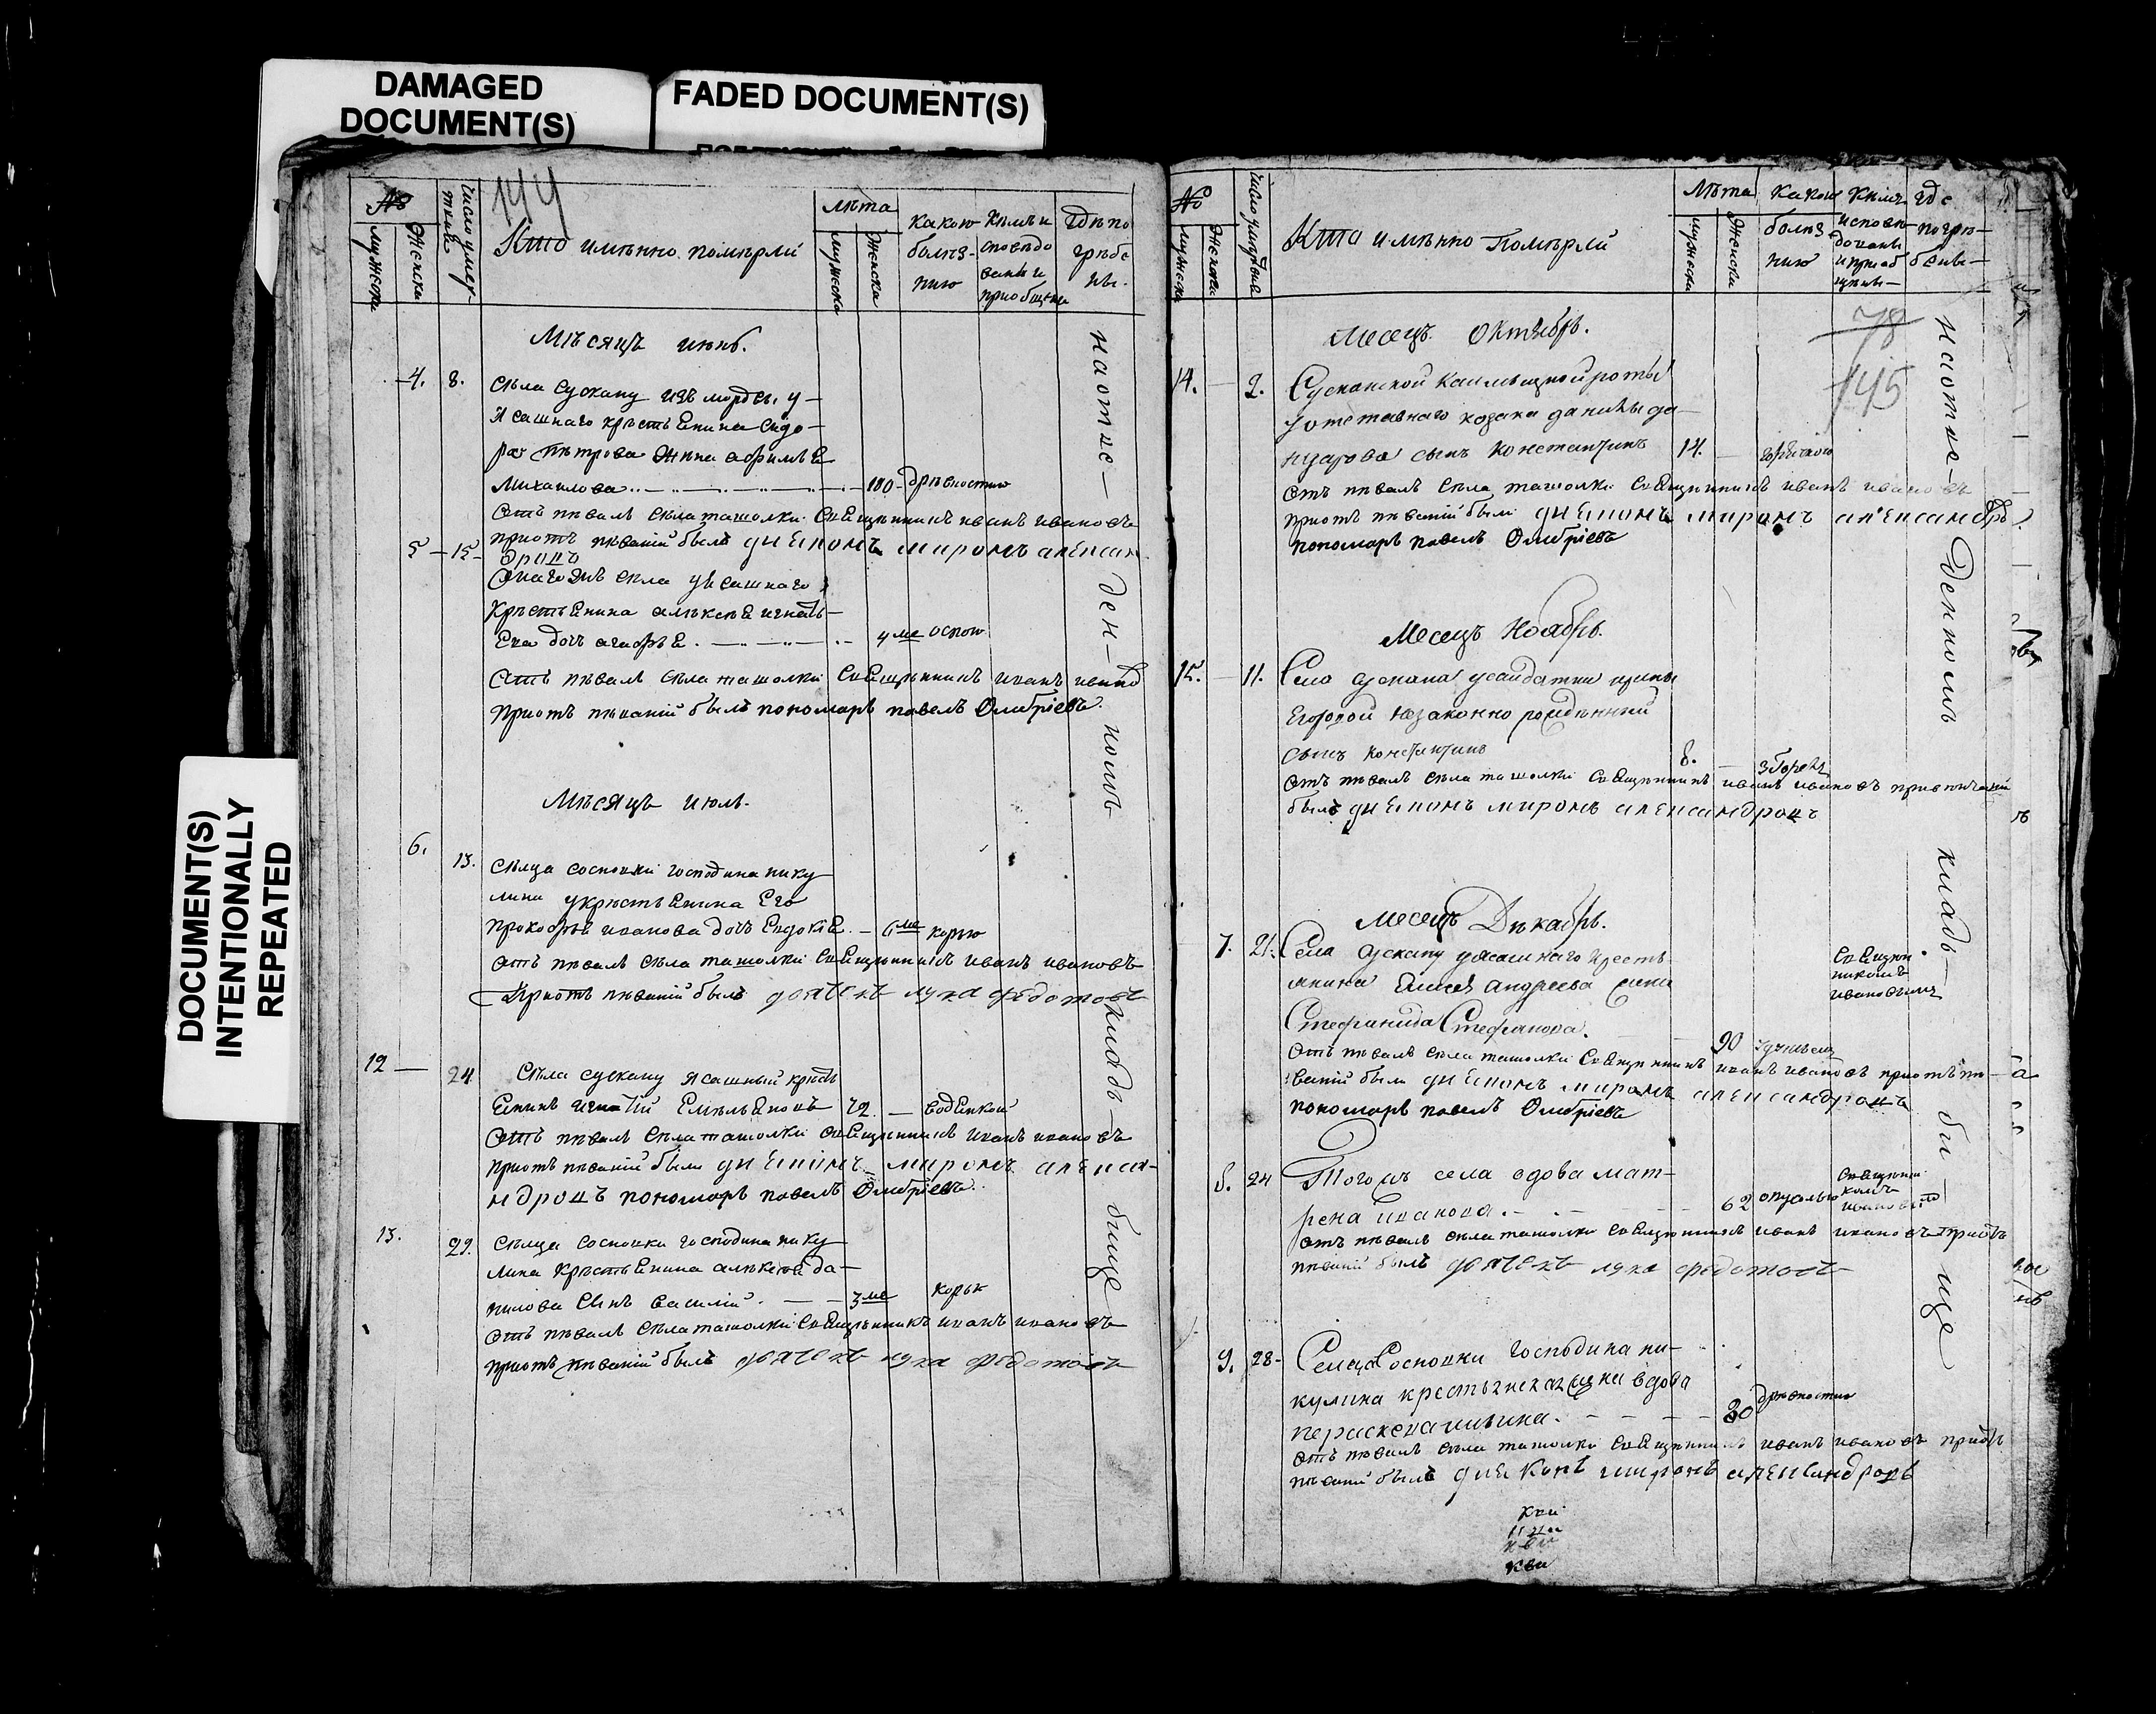 DAMAGED
DOCUMENT(S)
FADED DOCUMENT(S)
DOCUMENT(S)
INTENTIONALLY
REPEATED
144
№
мужеска
женска
число умер
Кто имѣнно помѣрли
лѣта
мужеска
женска
какою
болѣз-
нию
Кѣмъ и
споведо
ваны и
приобщены
гдѣ по
грѣбе
ны.
Мѣсяцъ июнь.
4. 8. сѣла сускану изъ мордвы у
ясашнаго крѣстьянина сидо-
ра пѣтрова жена
Михаилова 100 дрѣвностию
Отъ пѣвалъ сѣла ташолки священникъ иванъ ивановъ
приотъ пѣваніи былъ миромъ алексан
дровъ
5 15 сѣла ясашнаго
крѣстьянина алѣксѣя игнать
ева дочь 4 ме оспою
Отъ пѣвалъ сѣла ташолки священникъ иванъ иванов
приотъ пѣваніи былъ пономарь павелъ Дмитріевъ
Мѣсяцъ июль.
6. 13. сѣлца сосновки господина нику
лина укрѣстьянина Его
прокофья иванова дочь Евдокія 6 ме корью
отъ пѣвалъ сѣла ташолки священникъ иванъ ивановъ
приотъ пѣваніи былъ дьячекъ лука федотовъ
12 24 Сѣла сускану ясашный крѣсть
янинъ игнатій Емѣльяновъ 72. водянкой
отъ пѣвалъ сѣла ташолки священникъ иванъ ивановъ
приотъ пѣваніи были миромъ алекса-
ндровъ пономарь павелъ Дмитріевъ
13. 29. сѣлца сосновки господина нику
лина крѣстьянина алѣксѣя да-
нилова сынъ василій 3 ме корью
отъ пѣвалъ сѣла ташолки священникъ иванъ ивановъ
приотъ пѣваніи былъ дьячекъ лука федотовъ
на отве-
ден-
номъ
кладъ-
бище
№
мужеска
женска
Кто имѣнно Помѣрли
Лѣта
мужеска
женска
какою
болѣз
нию
Кѣмъ
исповѣ
дованы
и приоб
щены
гдѣ
погре-
бены
78
145
Месецъ Октябрь.
14. 2. Сусканской роты
у отставнаго козака данилы
сынъ константинъ 14. горячкою
отъ пѣвалъ сѣла ташолки священникъ иванъ ивановъ
приотъ пѣваніи были миромъ александро
пономарь павелъ Дмитріевъ
Месецъ Ноябрь.
15. 11. Село сускана
Егоровой незаконно рожденный
сынъ константинъ 8.
отъ пѣвалъ сѣла ташолки священникъ иванъ ивановъ
былъ миромъ александровъ
Месецъ Декабрь.
7. 21. Села Сускану ясашнаго крестъ
янина Андреева жена
Стефанида Стефанова. 90
Священ
никомъ
ивановымъ
отъ пѣвалъ сѣла ташолки священникъ иванъ ивановъ
ваніи были миромъ александровъ
пономарь павелъ Дмитріевъ
8. 24 Того жъ села вдова мат-
рена иванова. 62 опухолью
священни
комъ
ивановым
отъ пѣвалъ сѣла ташолки священникъ иванъ ивановъ приотъ
пѣваніи былъ дьячекъ лука федотовъ
9. 28 Селца Сосновки Господина ни-
кулина крестьянская жена вдова
80 дрѣвностию
отъ пѣвалъ сѣла ташолки священникъ иванъ ивановъ приотъ
пѣваніи былъ миронъ александровъ
на отве-
денномъ
кладъ-
би-
ще